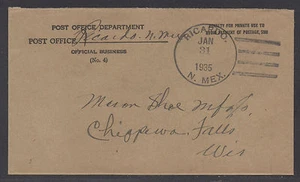 POST OFFICE DEPARTMENT
POST OFFICE Ricardo, N. Mex
OFFICIAL BUSINESS
(No. 4)
PENALTY FOR PRIVATE USE TO
AVOID PAYMENT OF POSTAGE, $300
RICARDO,
JAN
31
1935
N. MEX.
Mason Shoe Mfg Co,
Chippewa Falls,
Wis